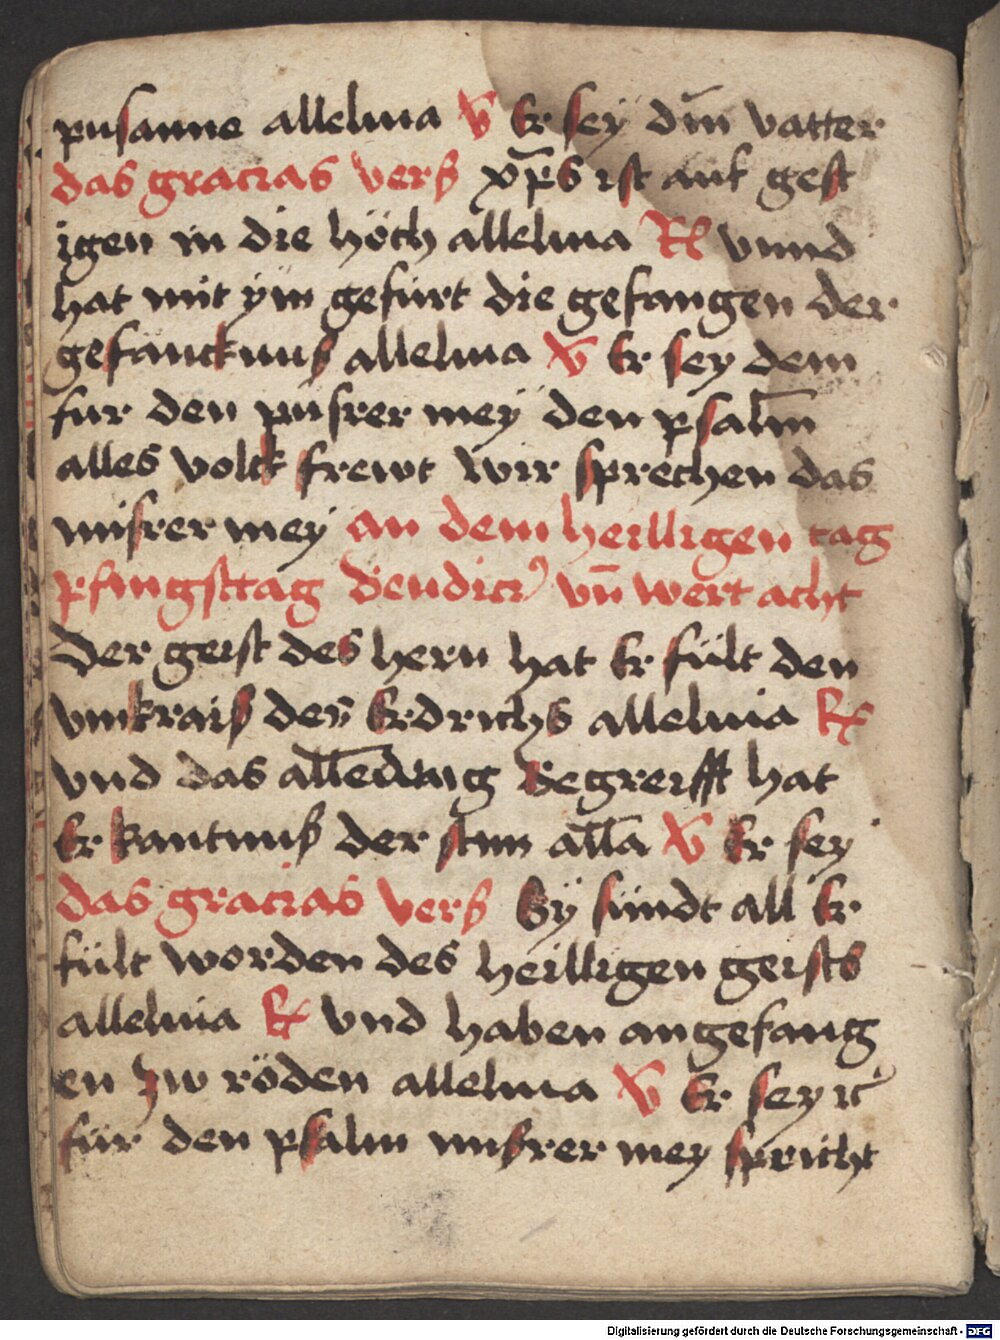 pusanne alleluia v̄ Er sey dm̄ vatter
das gracias verß xp̄s ist auf gest
igen in die höch alleluia R vnnd
hat mit ÿm gefürt die gefangen der
gefäncknuß alleluia v̄ Er sey dem
fur den misrer meÿ den psalm̄
alles volck frewt wir sprechen das
misrer meÿ an dem heilligen tag
pfingsttag vn̄ wert acht
Der geist des hern hat Er fült den
vmkraiß des Erdrichs alleluia R
vnd das alleding Begreifft hat
Er kantnuß der stim all̄a v̄ Er sey
das gracias verß Sÿ sündt all Er
fült worden des heilligen geists
alleluia R vnd haben angefang
en zw röden alleluia v̄ Er sey ic
für den psalm misrer mey spricht
Digitalisierung gefördert durch die Deutsche Forschungsgemeinschaft - DFG